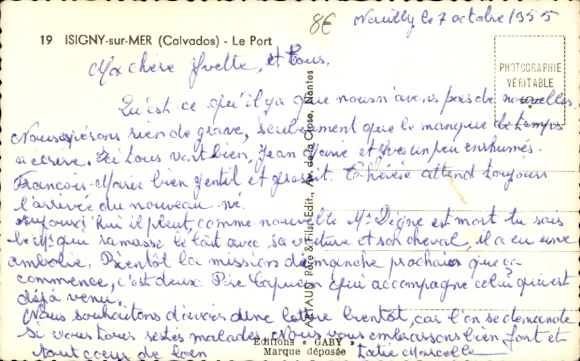 8€
Neuilly le 7 octobre 1955
19 ISIGNY-sur-MER (Calvados) - Le Port
PHOTOGRAPHIE
VÉRITABLE
Ma chère Yvette, et tous.
Qu'est ce qu'il y a que nous n'avons pas de nouvelles,
Nous espérons rien de grave, seulement que le manque de temps
a écrire. Ici tous vont bien, Jean Marie et Yves un peu enrhumés.
François-Marie bien gentil et grossit. Thérèse attend toujours
l'arrivée du nouveau né.
Aujourd'hui il pleut, comme nouvelle Mr est mort tu sais
le Mr qui ramasse le lait avec sa voiture et son cheval, il a eu une
embolie. Bientôt la mission dimanche prochain que ça
commence, c'est deux Père Capucin qui accompagne celui qui est
déjà venu.
Nous souhaitons d'avoir une lettre bientôt, car l'on se demande
si vous êtes malades. Nous vous embrassons bien fort et
tout cœur de loin
Tatie Marcelle
Artaud Père & Fils - Edit., Av. de la Close, Nantes
Editions « GABY »
Marque déposée